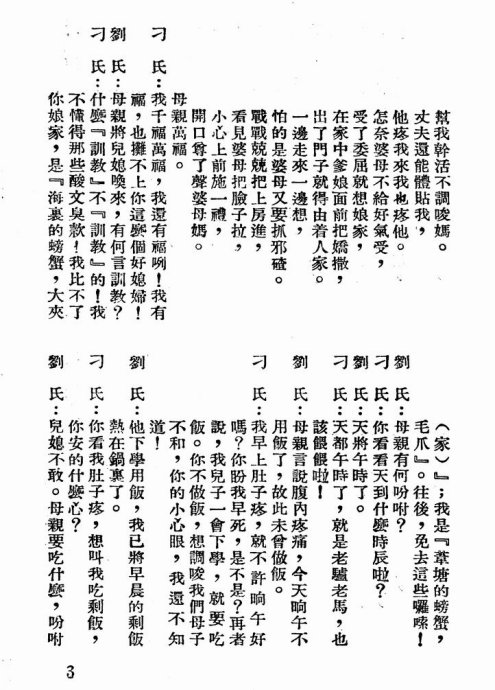 幫我幹活不調唆媽。
丈夫還能體貼我，
他疼我來我也疼他。
怎奈婆母不給好氣受，
受了委屈就想娘家，
在家中爹娘面前把嬌撒，
出了門子就得由着人家。
一邊走來一邊想，
怕的是婆母又要抓邪碴。
戰戰兢兢把上房進，
看見婆母把臉子拉，
小心上前施一禮，
開口尊了聲婆母媽。
母親萬福。
刁　氏：我千福萬福，我還有福咧！我有
福，也攤不上你這麼個好媳婦！
劉　氏：母親將兒媳喚來，有何言訓教？
刁　氏：什麼『訓教』不『訓教』的！我
不懂得那些酸文臭欵！我比不了
你娘家，是『海裏的螃蟹，大夾
（家）』；我是『葦塘的螃蟹，
毛爪』。往後，免去這些囉嗦！
劉　氏：母親有何吩咐？
刁　氏：你看看天到什麼時辰啦？
劉　氏：天將午時了。
刁　氏：天都午時了，就是老驢老馬，也
該餵餵啦！
劉　氏：母親言說腹內疼痛，今天晌午不
用飯了，故此未曾做飯。
刁　氏：我早上肚子疼，就不許晌午好
嗎？你盼我早死，是不是？再者
說，我兒子一會下學，就要吃
飯。你不做飯，想調唆我們母子
不和，你的小心眼，我還不知
道！
劉　氏：他下學用飯，我已將早晨的剩飯
熱在鍋裏了。
刁　氏：你看我肚子疼，想叫我吃剩飯，
你安的什麼心？
劉　氏：兒媳不敢。母親要吃什麼，吩咐
3